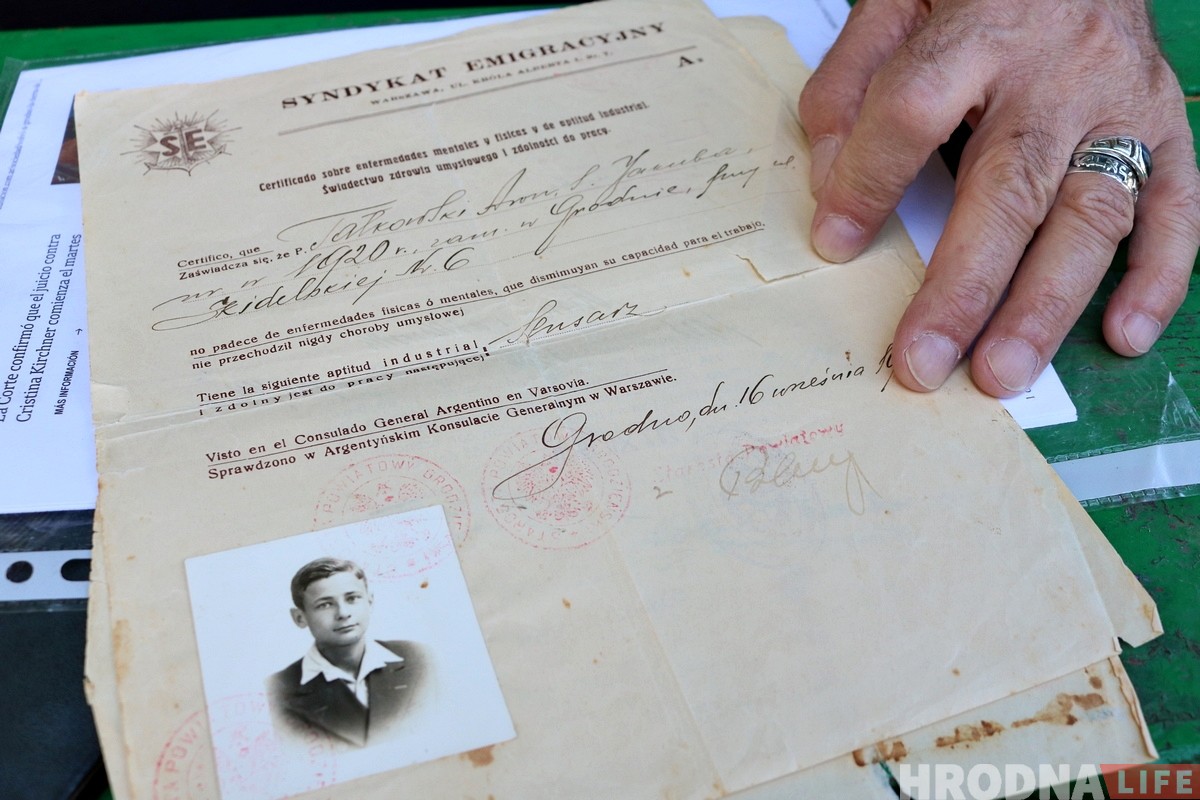 SYNDYKAT EMIGRACYJNY
WARSZAWA, UL. KRÓLA ALBERTA I. Nr 7.
A.
SE
Certificado sobre enfermedades mentales y fisicas y de aptitud industrial.
Świadectwo zdrowia umysłowego i zdolności do pracy.
Certifico, que
Zaświadcza się, że P. Tatkowski Aron, s. Jakuba
ur. w 1920 r., zam. w Grodnie, przy ul.
Skidelskiej Nr. 6
no padece de enfermedades fisicas ó mentales, que dismimuyan su capacidad para el trabajo,
nie przechodził nigdy choroby umysłowej
Tiene la siguiente aptitud industrial:
i zdolny jest do pracy następującej
Visto en el Consulado General Argentino en Varsovia.
Sprawdzono w Argentyńskim Konsulacie Generalnym w Warszawie.
Grodno, dn. 16 września
POWIATOWY
La Corte confirmó que el juicio contra
Cristina Kirchner comienza el martes
MÁS INFORMACIÓN →
HRODNA LIFE